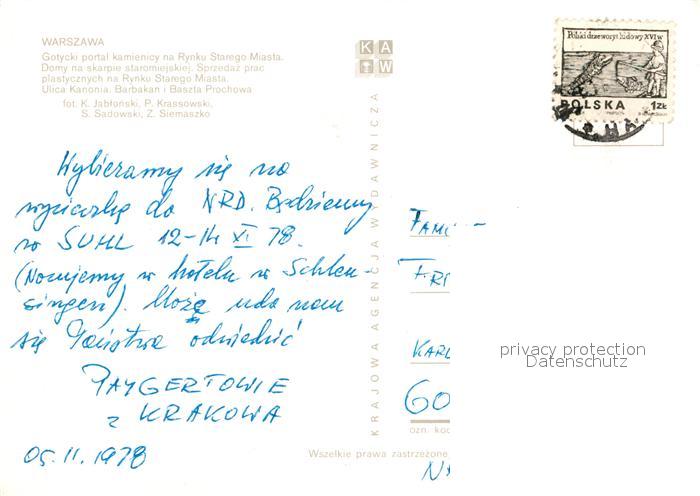 WARSZAWA
Gotycki portal kamienicy na Rynku Starego Miasta.
Domy na skarpie staromiejskiej. Sprzedaż prac
plastycznych na Rynku Starego Miasta.
Ulica Kanonia. Barbakan i Baszta Prochowa
fot. K. Jabłoński, P. Krassowski,
S. Sadowski, Z. Siemaszko
KAW
Polski drzeworyt ludowy XVI w
POLSKA 1 ZŁ
Wybieramy się na
wycieczkę do NRD. Będziemy
w SUHL 12-14 XI 78.
(Nocujemy w hotelu w Schleu-
singen). Może uda nam
się Państwa odwiedzić
PAYGERTOWIE
z KRAKOWA
05.11.1978
KRAJOWA AGENCJA WYDAWNICZA
FAMI
FRI
KARL
60
ozn. kod
Wszelkie prawa zastrzeżone
privacy protection
Datenschutz